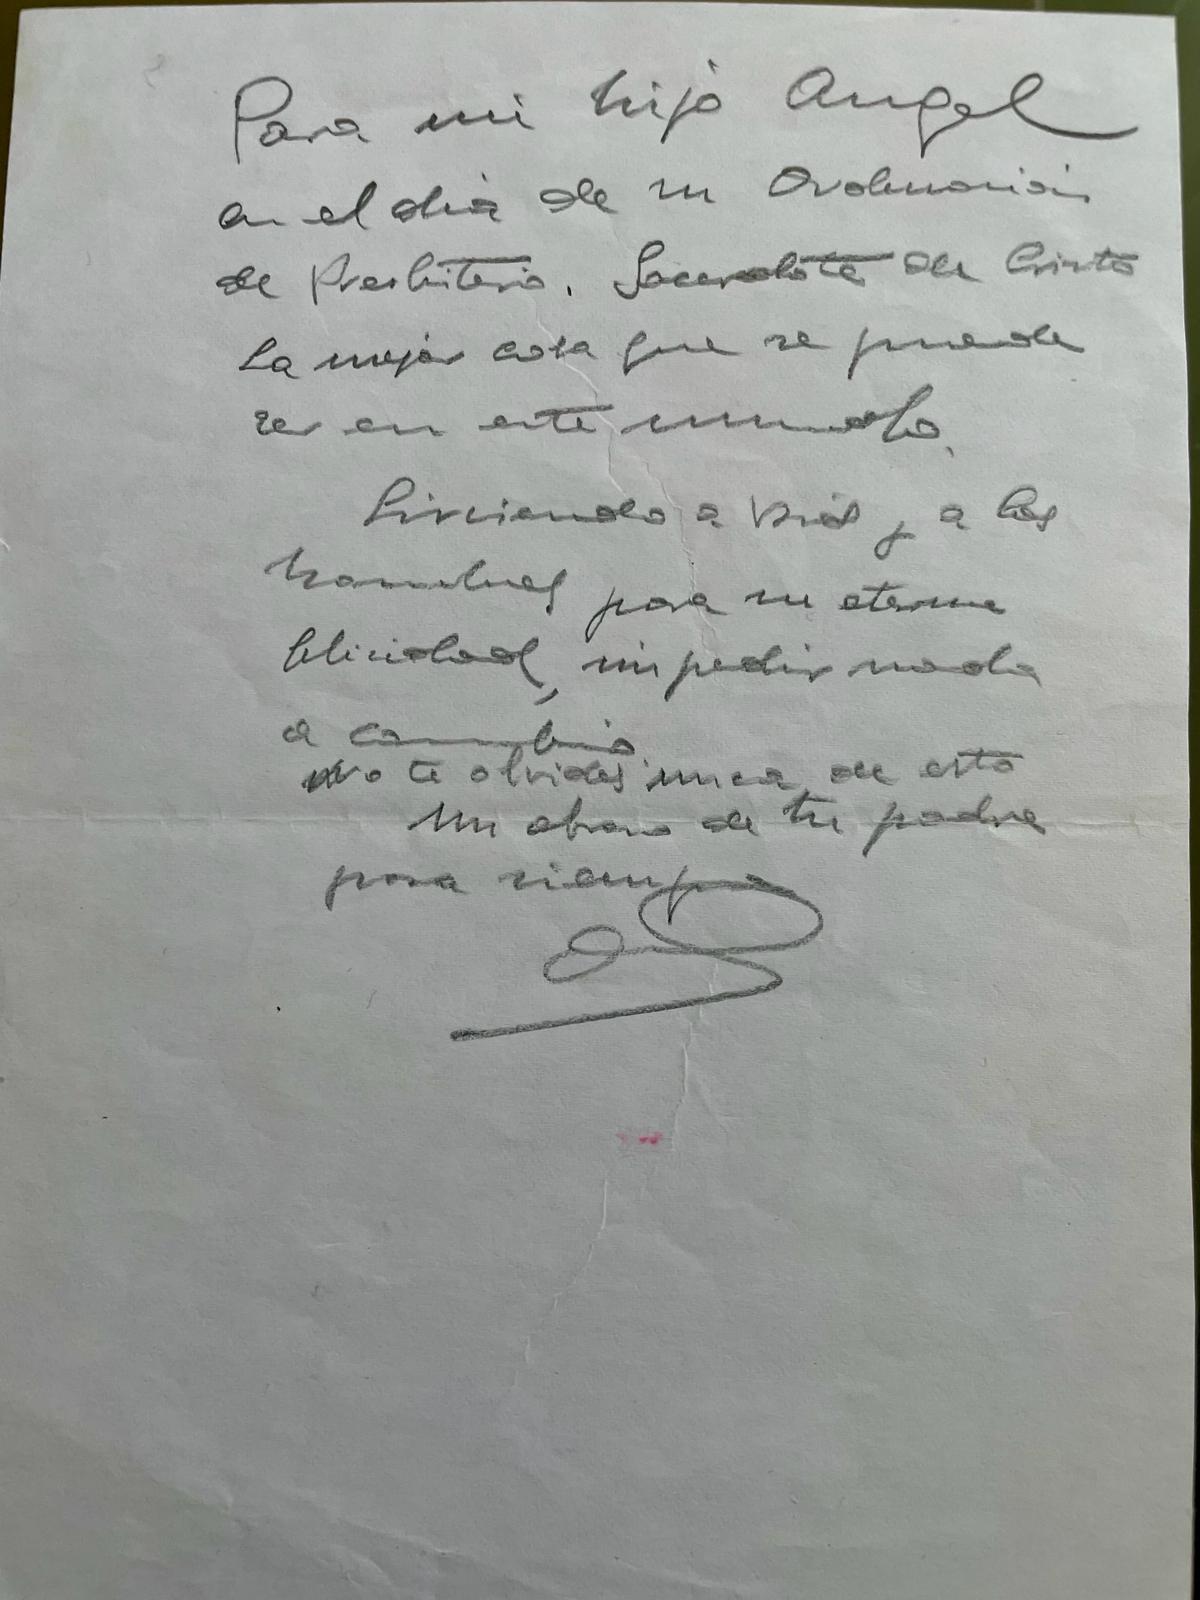 Para mi hijo Angel
en el dia de su Ordenación
de Presbitero. Sacerdote de Cristo
La mejor cosa que se puede
ser en este mundo.
Sirviendo a Dios y a los
hombres para su eterna
felicidad, sin pedir nada
a cambio
No te olvides nunca de esto
Un abrazo de tu padre
para siempre